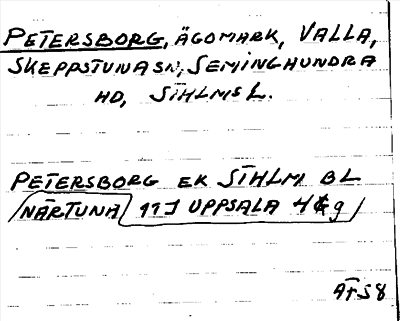 PETERSBORG, ÄGOMARK, VALLA,
SKEPPSTUNA SN, SEMINGHUNDRA
HD, STHLMS L.
PETERSBORG EK STHLM BL
NÄRTUNA 11J UPPSALA 4 g
ÄFS8